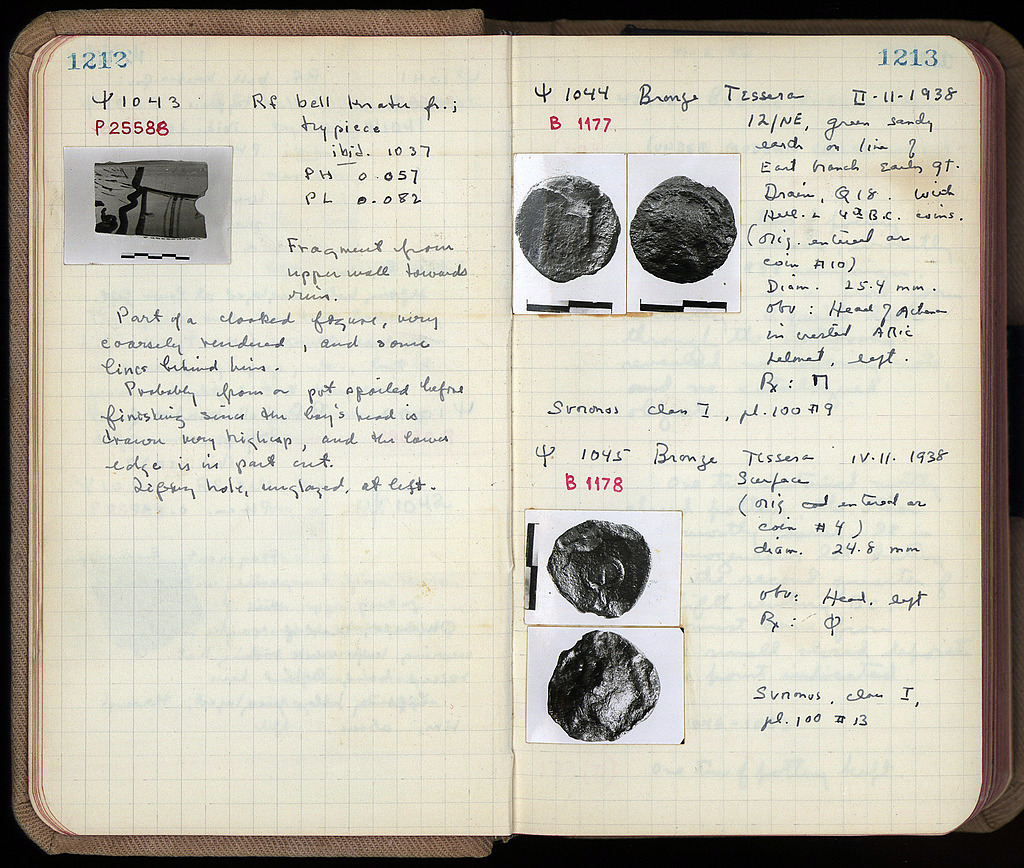 1212
Ψ 1043 Rf bell krater fr.;
P 25588 trypiece
ibid. 1037
PH 0.057
PL 0.082
Fragment from
upper wall towards
rim.
Part of a cloaked figure, very
coarsely rendered, and some
lines behind him.
Probably from a pot spoiled before
finishing since the boy's head is
drawn very high up, and the lower
edge is in part cut.
hole, unglazed, at left.
1213
Ψ 1044 Bronze Tessera II-11-1938
B 1177 12/NE, green sandy
earth on line of
East branch early gt.
Drain, Q 18. with
Hell. & 4th B.C. coins.
(orig. entered as
coin #10)
Diam. 25.4 mm.
Obv: Head of Athena
in crested Attic
helmet, left.
Rx: Π
Svoronos class I, pl. 100 #9
Ψ 1045 Bronze Tessera IV-11-1938
B 1178 Surface
(orig entered as
coin #4)
diam. 24.8 mm
Obv: Head, left
Rx: Φ
Svoronos, class I,
pl. 100 #13